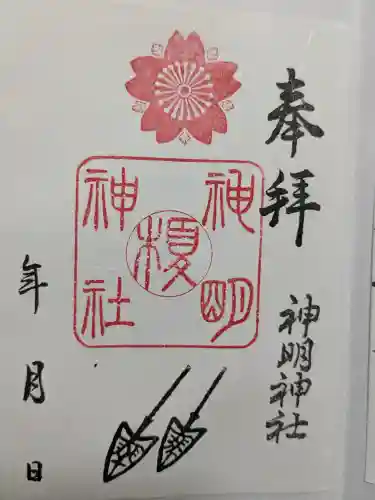 奉拝
神明神社
神明
神社
榎
年月日